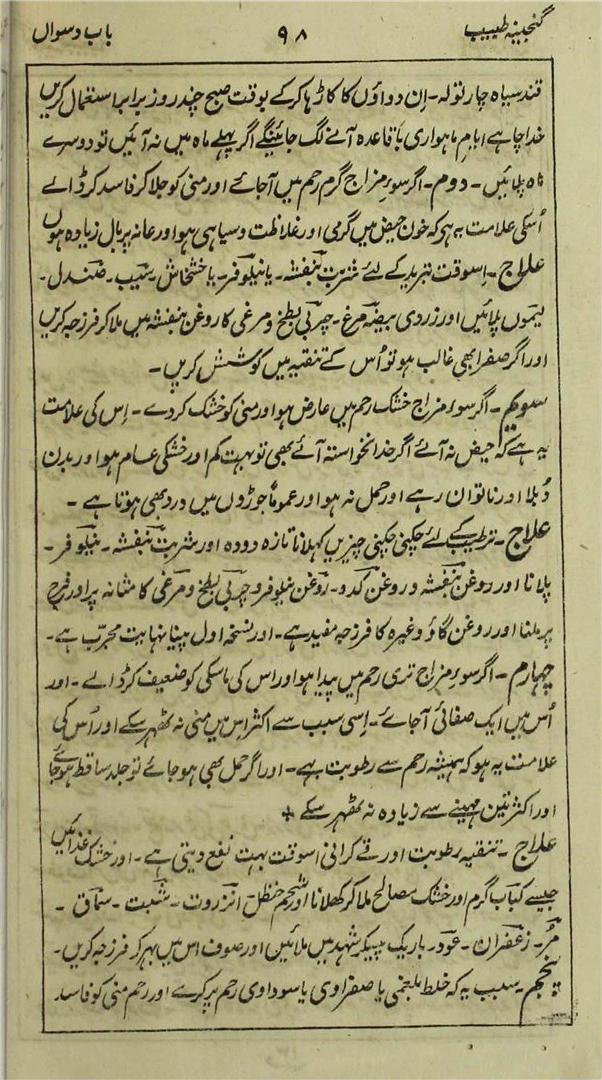 گنجینہ طبیب ۹۸ باب دسواں
قند سیاہ چار تولہ۔ اِن دواؤں کا کاڑہا کرکے بوقت صبح چند روز برابر استعمال کریں
خدا چاہے ایام ماہواری باقاعدہ آنے لگ جائینگے اگر پہلے ماہ میں نہ آئیں تو دوسرے
ماہ پلائیں۔ دوم۔ اگر سوءِ مزاج گرم رحم میں آجائے اور منی کو جلا کر فاسد کر ڈالے
اُسکی علامت یہ ہی کہ خون حیض میں گرمی اور غلاظت و سیاہی ہو اور عانہ پر بال زیادہ ہوں
علاج۔ اِسوقت تبرید کے لئے شربت بنفشہ۔ یا نیلوفر۔ یا خشخاش۔ سیب۔ صندل۔
لیموں پلائیں اور زردی بیضہ مرغ۔ چربی بطخ و مرغی کا روغن بنفشہ میں ملا کر فرزجہ کریں
اور اگر صفرا بھی غالب ہو تو اُس کے تنقیہ میں کوشش کریں۔
سویم۔ اگر سوءِ مزاج خشک رحم میں عارض ہو اور منی کو خشک کر دے۔ اِس کی علامت
یہ ہے کہ حیض نہ آئے اگر خدانخواستہ آئے بھی تو بہت کم اور خشکی عام ہو اور بدن
دُبلا اور ناتوان رہے اور حمل نہ ہو اور عموماً جوڑوں میں درد بھی ہوتا ہے۔
علاج۔ ترطیب کے لئے چکنی چکنی چیزیں کہلانا تازہ دودہ اور شربت بنفشہ۔ نیلوفر۔
پلانا اور روغن بنفشہ و روغن کدو۔ روغن نیلوفر و چربی بطخ و مرغی کا مثانہ پر اور فرج
پر ملنا اور روغن گاؤ وغیرہ کا فرزجہ مفید ہے۔ اور نسخہ اول پینا نہایت مجرّب ہے۔
چہارم۔ اگر سوءِ مزاج تری رحم میں پیدا ہو اور اس کی ماسکی کو ضعیف کر ڈالے۔ اور
اُس میں ایک صفائی آجائے۔ اِسی سبب سے اکثر اِس میں منی نہ ٹھہر سکے اور اُس کی
علامت یہ ہو کہ ہمیشہ رحم سے رطوبت بہے۔ اور اگر حمل بھی ہو جائے تو جلد ساقط ہو جائے
اور اکثر تین مہینے سے زیادہ نہ ٹھہر سکے +
علاج۔ تنقیہ رطوبت اور قے کرانی اسوقت بہت نفع دیتی ہے۔ اور خشک غذائیں
جیسے کباب گرم اور خشک مصالح ملا کر کھلانا اور شحم حنظل انزروت۔ شبت۔ سماق۔
مُر۔ زعفران۔ عود۔ باریک پیسکر شہد میں ملائیں اور صوف اس میں بہر کر فرزجہ کریں۔
پنجم۔ سبب یہ کہ خلط بلغمی یا صفراوی یا سوداوی رحم پر گرے اور رحم منی کو فاسد